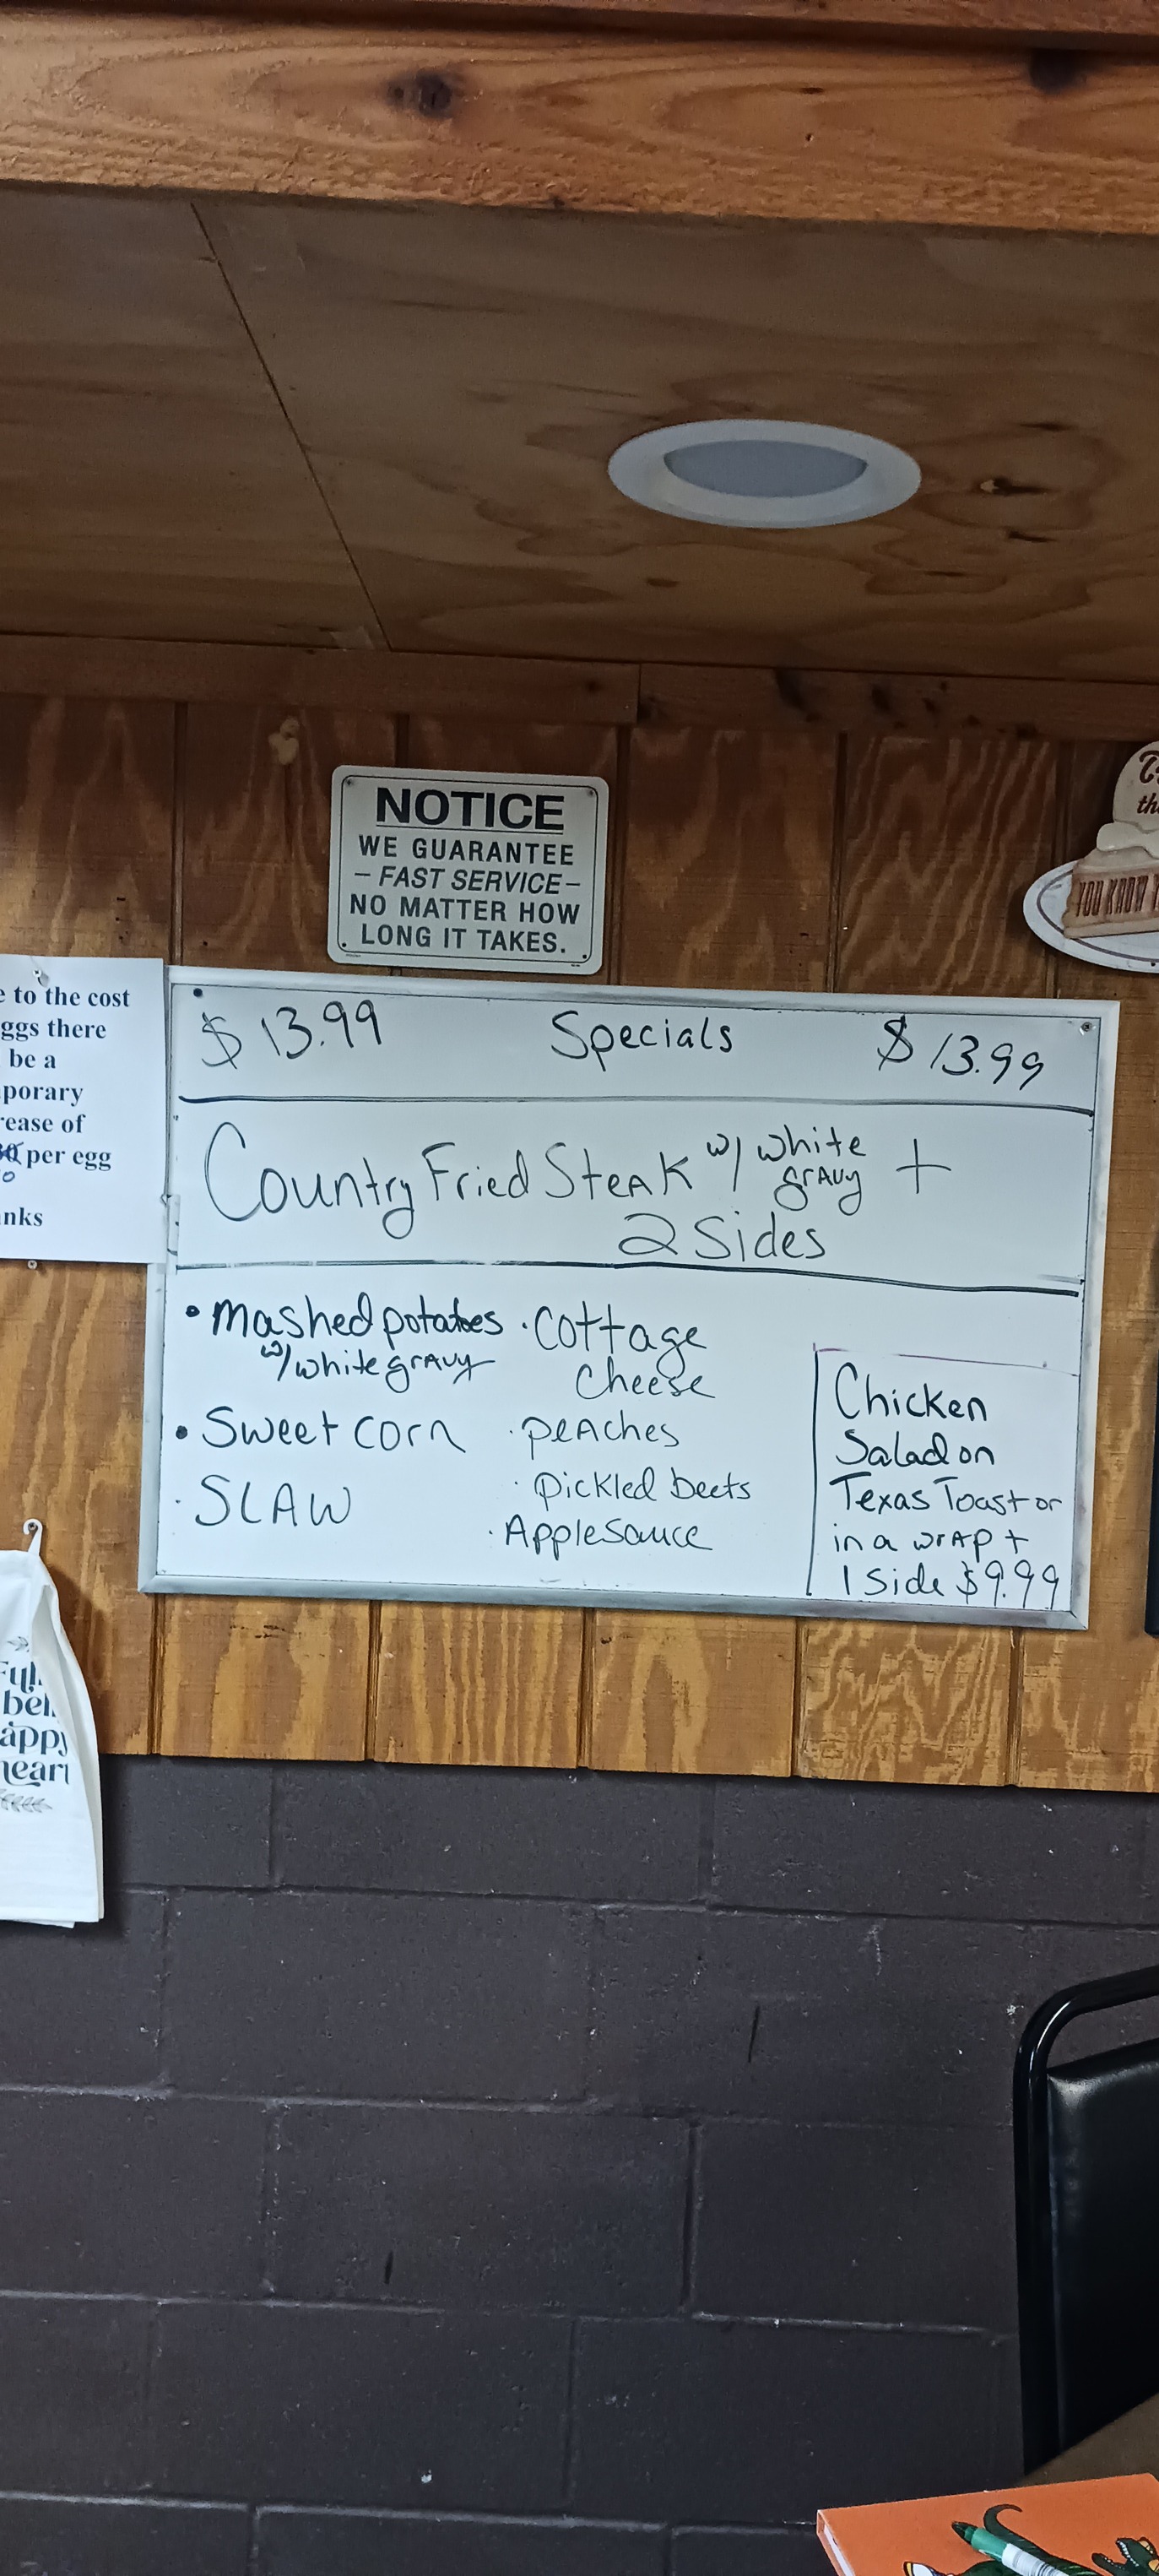 NOTICE
WE GUARANTEE
– FAST SERVICE –
NO MATTER HOW
LONG IT TAKES.
YOU KNOW
to the cost
there
be a
of
per egg
$13.99 Specials $13.99
Country Fried Steak w/ white gravy +
2 Sides
• mashed potatoes
w/ white gravy
• Sweet corn
· SLAW
· Cottage
Cheese
· peaches
· pickled beets
· Applesauce
Chicken
Salad on
Texas Toast or
in a wrap +
1 Side $9.99